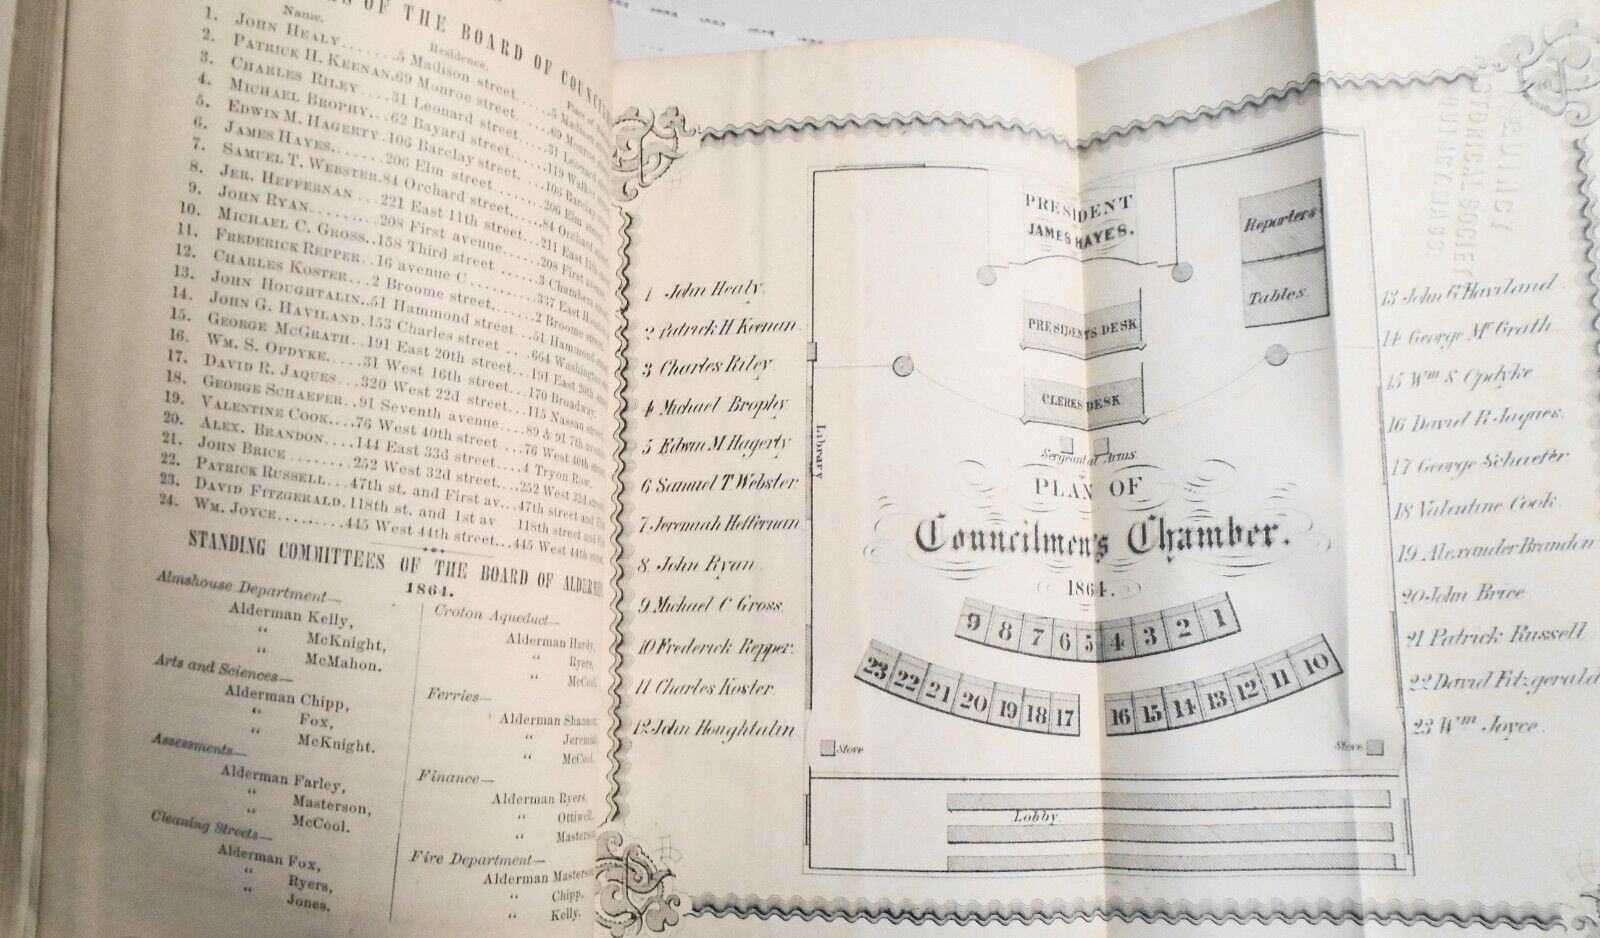 OF THE BOARD OF COUNCIL
Name. Residence. Place of
1. JOHN HEALY.......5 Madison street.....5 Madison
2. PATRICK H. KEENAN.69 Monroe street.....69 Monroe
3. CHARLES RILEY....31 Leonard street.....31 Leonard
4. MICHAEL BROPHY...62 Bayard street.....119 Walker
5. EDWIN M. HAGERTY.106 Barclay street...106 Barclay
6. JAMES HAYES.......206 Elm street.......206 Elm street
7. SAMUEL T. WEBSTER.84 Orchard street.....84 Orchard
8. JER. HEFFERNAN ...221 East 11th street..211 East 11th
9. JOHN RYAN.........208 First avenue......208 First
10. MICHAEL C. GROSS..158 Third street ....3 Chambers
11. FREDERICK REPPER..16 avenue C ..........337 East
12. CHARLES KOSTER...2 Broome street.......2 Broome street
13. JOHN HOUGHTALIN..51 Hammond street....51 Hammond
14. JOHN G. HAVILAND.153 Charles street ...664 Washington
15. GEORGE MCGRATH..191 East 20th street...191 East 20th
16. WM. S. OPDYKE.....31 West 16th street...170 Broadway.
17. DAVID R. JAQUES ..320 West 22d street...115 Nassau street
18. GEORGE SCHAEFER..91 Seventh avenue....89 & 91 7th avenue
19. VALENTINE COOK...76 West 40th street...76 West 40th
20. ALEX. BRANDON....144 East 33d street....4 Tryon Row.
21. JOHN BRICE ........252 West 32d street...252 West 32d
22. PATRICK RUSSELL...47th st. and First av...47th street and
23. DAVID FITZGERALD.118th st. and 1st av 118th street and
24. WM. JOYCE.........445 West 44th street...445 West 44th
STANDING COMMITTEES OF THE BOARD OF ALDERMEN
1864.
Almshouse Department—
Alderman Kelly,
“ McKnight,
“ McMahon.
Arts and Sciences—
Alderman Chipp,
“ Fox,
“ McKnight.
Assessments—
Alderman Farley,
“ Masterson,
“ McCool.
Cleaning Streets—
Alderman Fox,
“ Ryers,
“ Jones.
Croton Aqueduct—
Alderman Hardy,
“ Ryers,
“ McCool.
Ferries—
Alderman Shannon,
“ Jeremiah
“ McCool.
Finance—
Alderman Ryers,
“ Ottiwell,
“ Masterson
Fire Department—
Alderman Masterson
“ Chipp,
“ Kelly.
1 John Healy.
2 Patrick H Keenan.
3 Charles Riley.
4 Michael Brophy
5 Edwin M Hagerty
6 Samuel T. Webster
7 Jeremiah Heffernan
8 John Ryan
9 Michael C Gross.
10 Frederick Repper.
11 Charles Koster.
12 John Houghtalin.
PRESIDENT
JAMES HAYES.
Reporters
Tables.
PRESIDENTS DESK
CLERKS DESK
Sergeant at Arms.
Library
PLAN OF
Councilmen's Chamber.
1864.
9 8 7 6 5 4 3 2 1
23 22 21 20 19 18 17 16 15 14 13 12 11 10
Stove
Stove
Lobby.
13 John G Haviland
14 George Mc Grath
15 Wm S Opdyke
16 David R Jaques.
17 George Schaefer
18 Valentine Cook
19 Alexander Brandon
20 John Brice
21 Patrick Russell
22 David Fitzgerald
23 Wm Joyce.